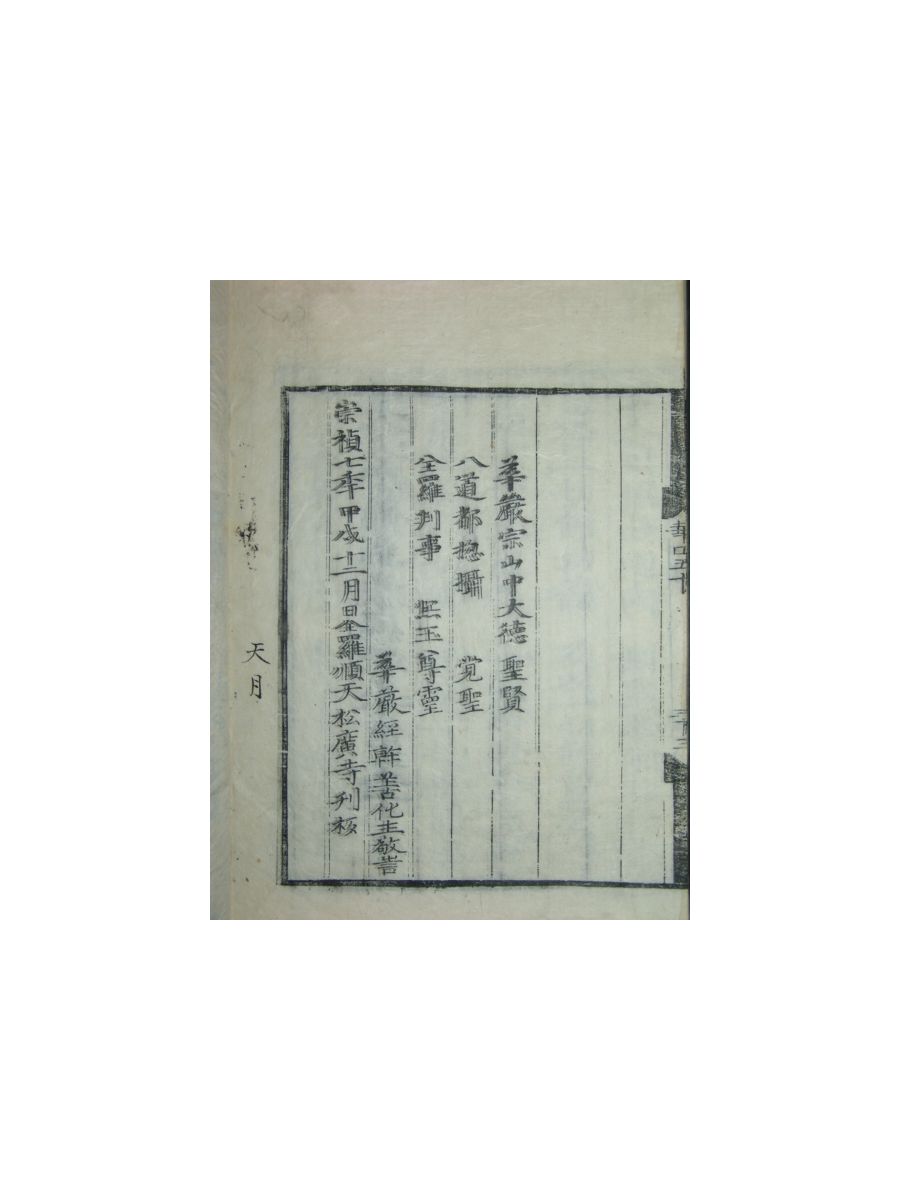 華嚴宗山中大德 聖賢
八道都揔攝 覚聖
全羅判事 熙玉尊靈
華嚴經幹善化主敬告
崇禎七年甲戌十二月日全羅順天松廣寺刊板
天月